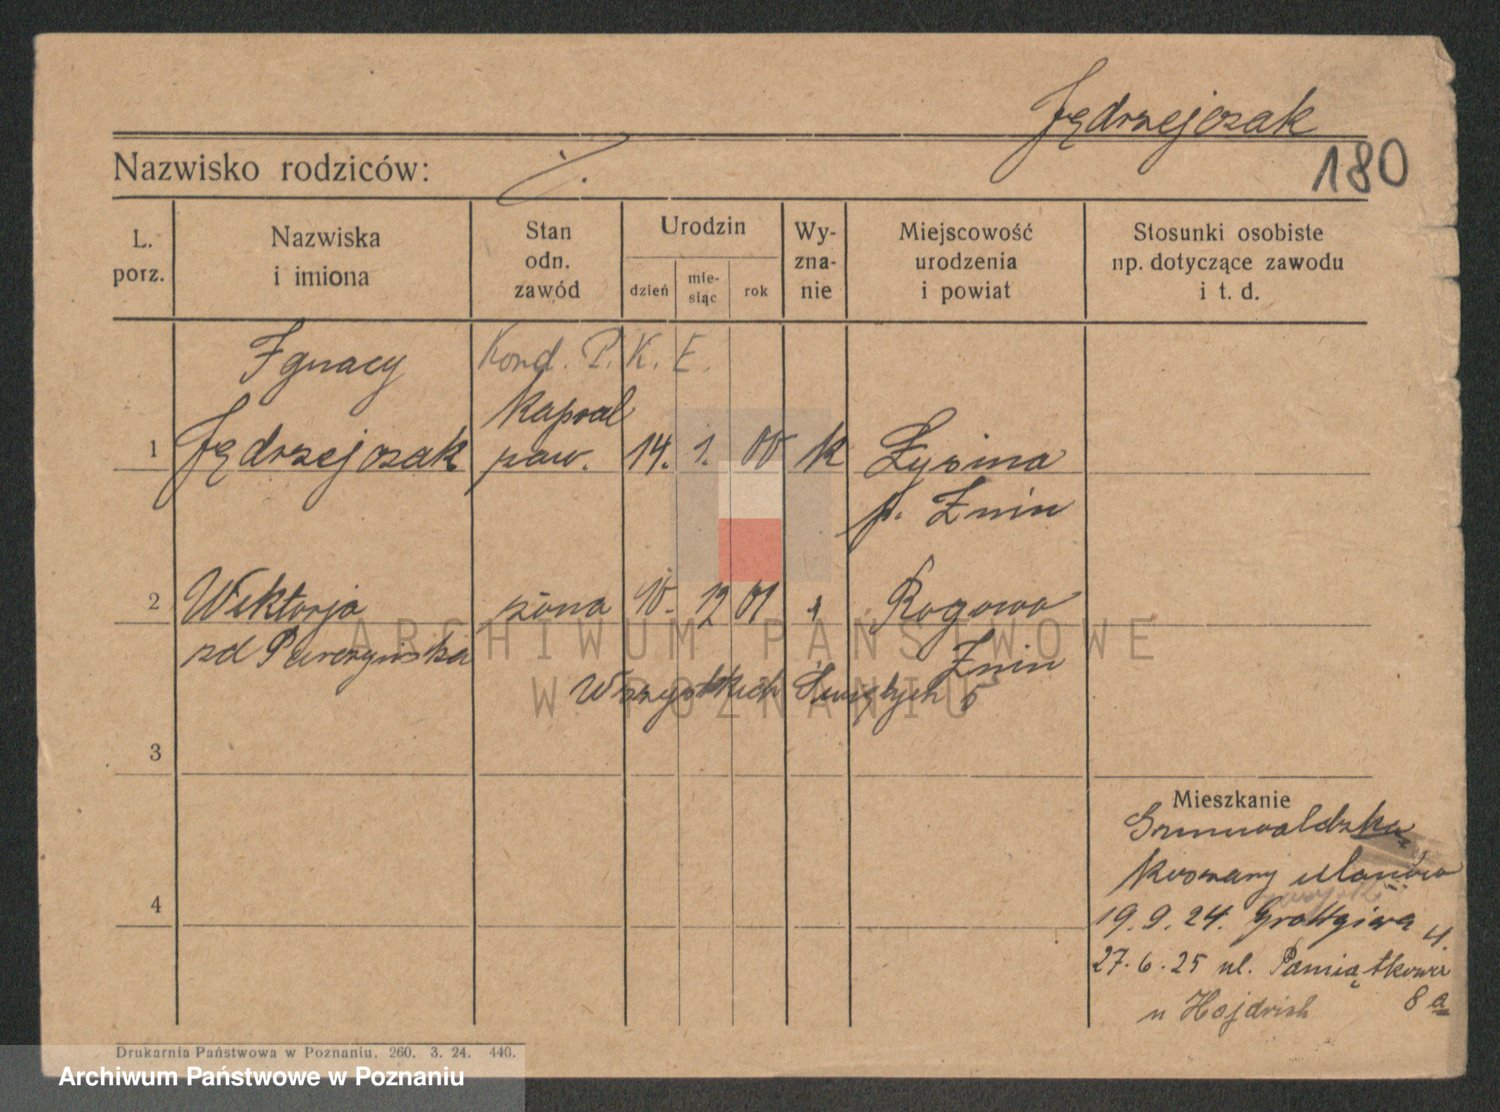 Jędrzejczak
Nazwisko rodziców: ./.
180
L. porz.
Nazwiska i imiona
Stan odn. zawód
Urodzin
dzień
mie-
siąc
rok
Wy-
zna-
nie
Miejscowość
urodzenia
i powiat
Stosunki osobiste
np. dotyczące zawodu
i t. d.
Ignacy Kond. P. K. E.
kapral
1 Jędrzejczak zaw. 14. 1. 00 k Łysina
p. Żnin
2 Wiktorja żona 10. 12 01 Rogowo
zd Żnin
Wszystkich Świętych 5
3
Mieszkanie
Grunwaldzka
Koszary ułanów
4
19.9.24. Grottgiera 4.
27.6.25 ul. Pamiątkowa
8a
u Hajdrich
Drukarnia Państwowa w Poznaniu. 260. 3. 24. 440.
ARCHIWUM PAŃSTWOWE
W POZNANIU
Archiwum Państwowe w Poznaniu